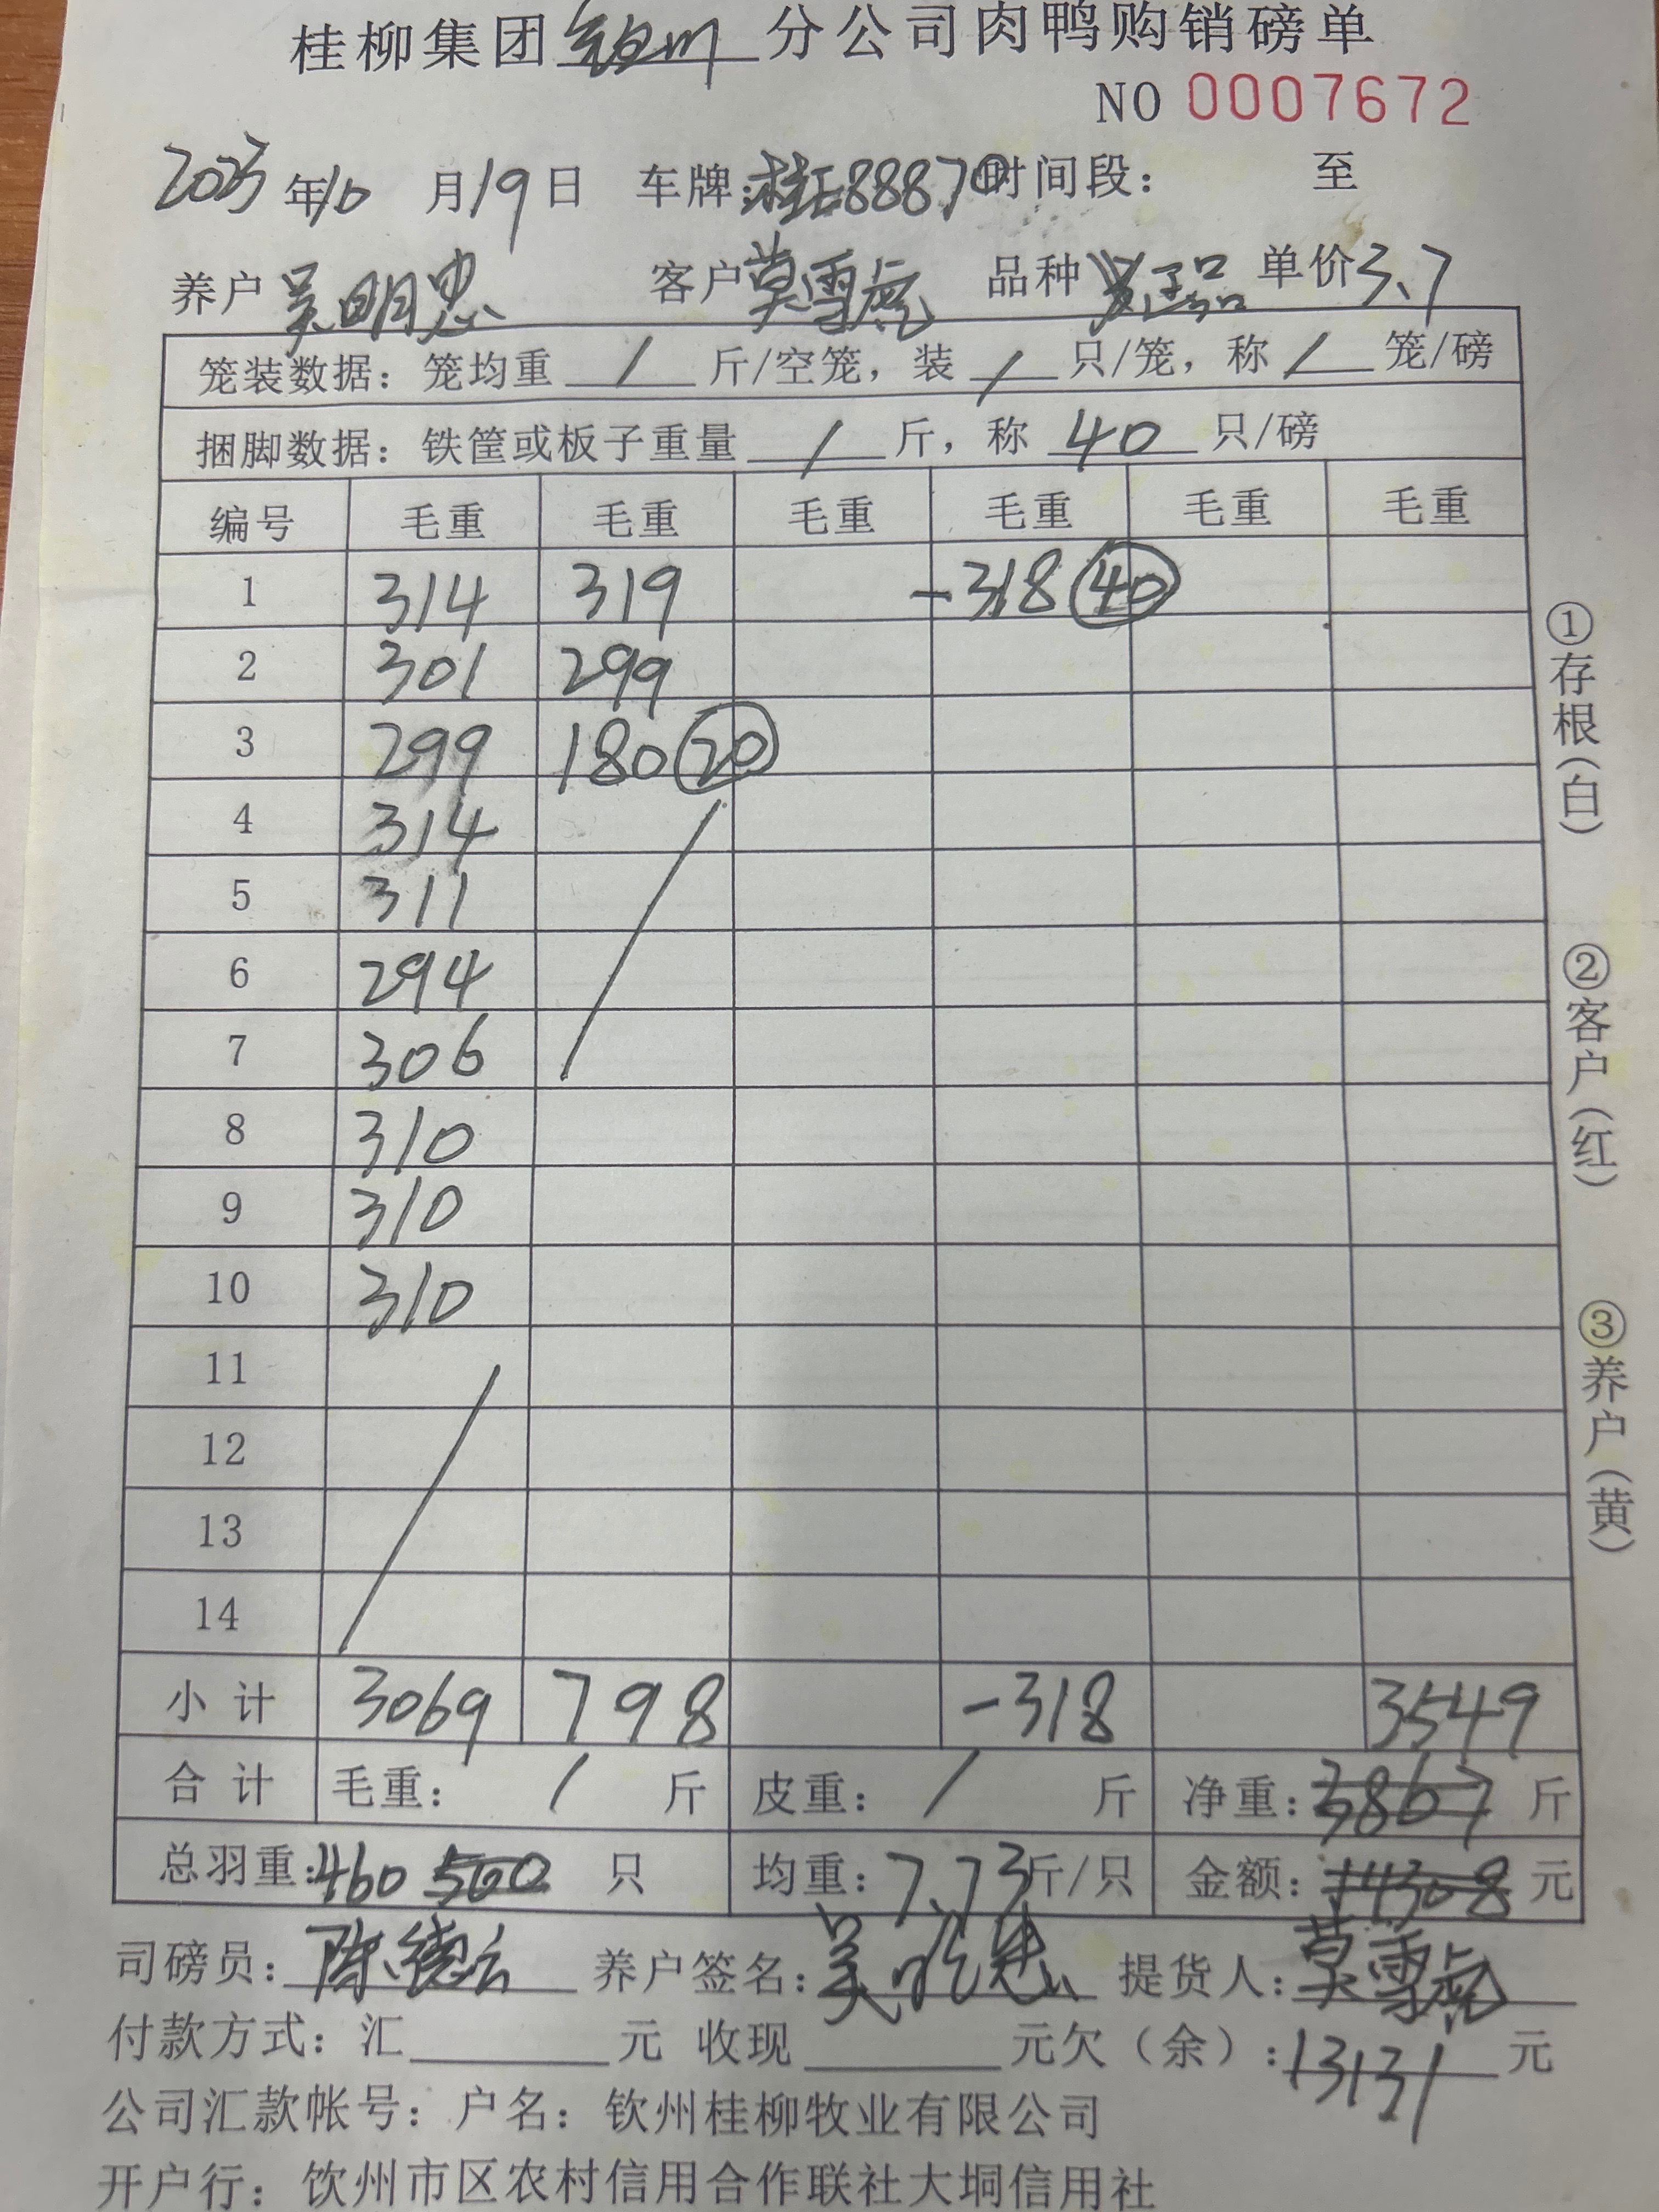 桂柳集团钦州分公司肉鸭购销磅单
NO 0007672
2025年10月19日 车牌:桂E88870时间段: 至
养户吴明忠 客户莫雪虎 品种 单价3.7
笼装数据:笼均重 / 斤/空笼,装 / 只/笼,称 / 笼/磅
捆脚数据:铁筐或板子重量 / 斤,称 40 只/磅
编号 毛重 毛重 毛重 毛重 毛重 毛重
1 314 319 -318 40
2 301 299
3 299 180 20
4 314
5 311
6 294
7 306
8 310
9 310
10 310
11
12
13
14
小计 3069 798 -318 3549
合计 毛重: / 斤 皮重: / 斤 净重:3867斤
总羽重:460 500 只 均重:7.73斤/只 金额:14308元
司磅员:陈德云 养户签名:吴明忠 提货人:莫雪虎
付款方式:汇 元 收现 元欠(余):13131元
公司汇款帐号:户名:钦州桂柳牧业有限公司
开户行:钦州市区农村信用合作联社大垌信用社
①存根(白)
②客户(红)
③养户(黄)